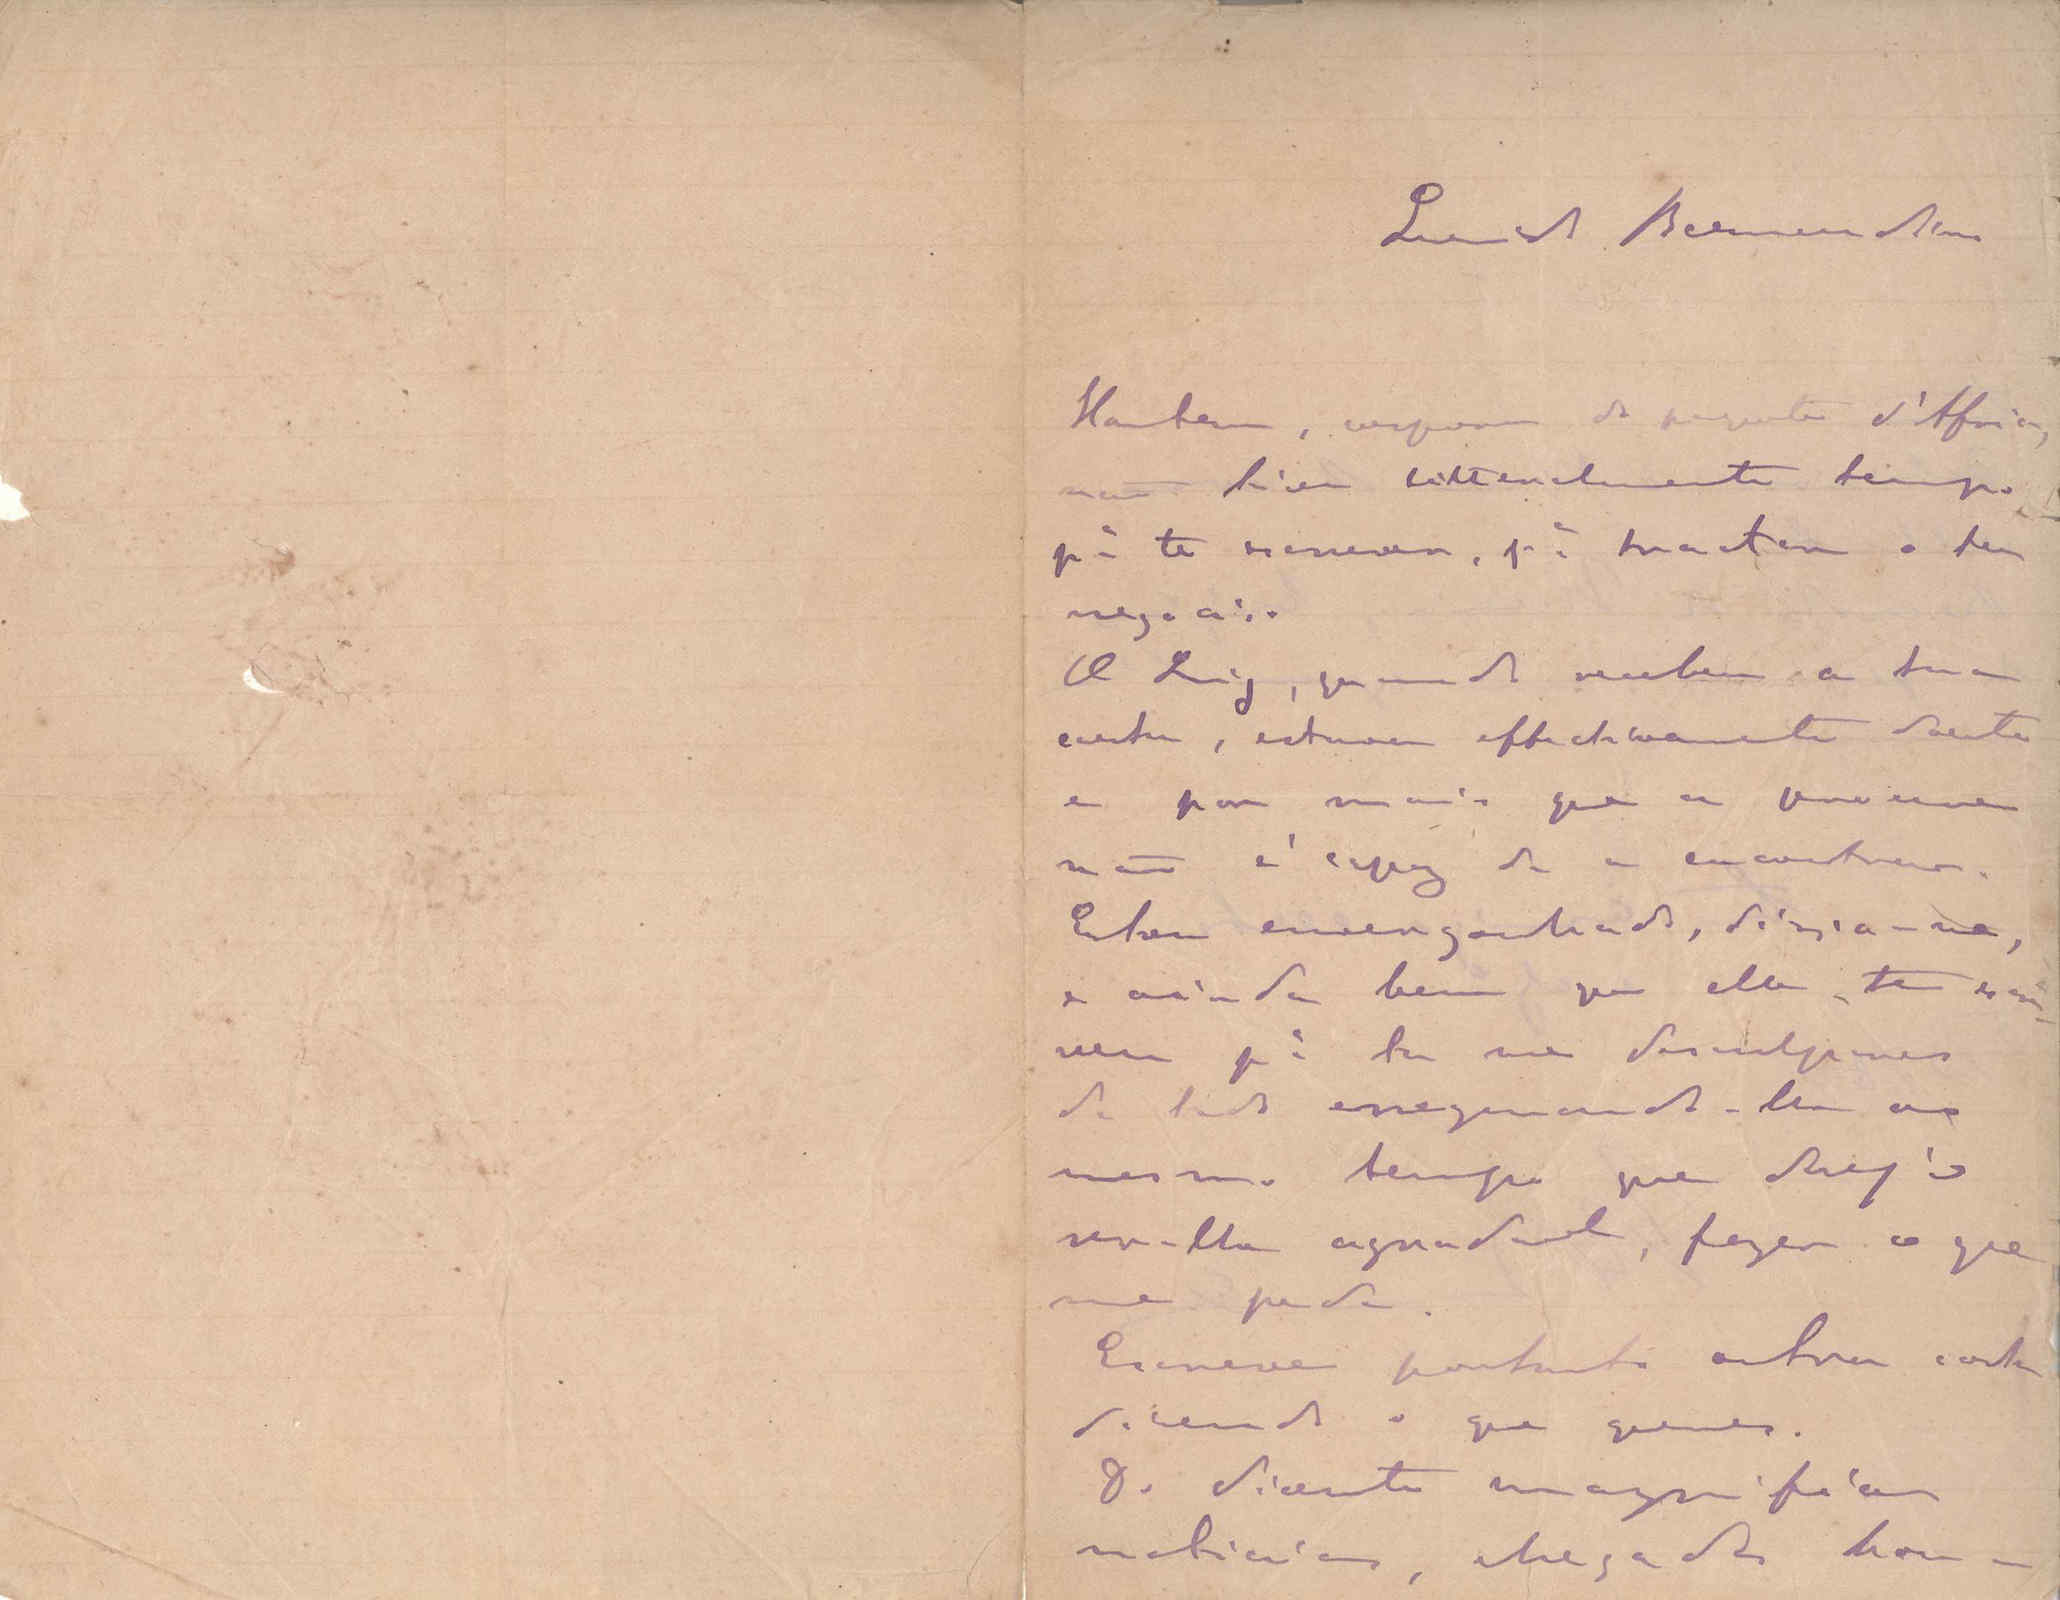 Querido Bernardino
Hontem, vespera de paquete d'Africa,
não tive litteralmente tempo
pª te escrever, pª tractar o teu
negocio.
O Luiz, quando recebeu a tua
carta, estava effectivamente doente
e por mais que a procure
não é capaz de a encontrar.
Estou envergonhado, dizia-me,
e ainda bem que elle te escre-
veu pª tu me desculpares
de tudo assegurando-lhe ao
mesmo tempo que desejo
ser-lhe agradavel, fazer o que
me pede.
Escreve portanto outra carta
dizendo o que queres.
Do Vicente magnificas
noticias, chegadas hon-